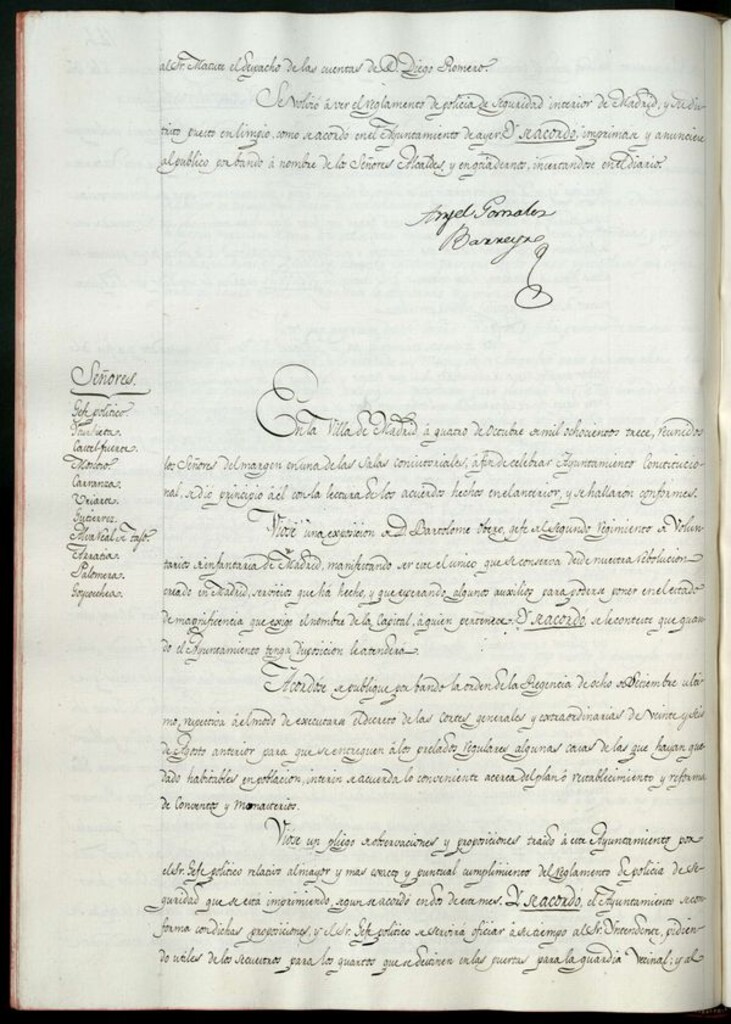 al Sr. Matute el despacho de las cuentas de D. Diego Romero.
Se volvió à ver el reglamento de policia de seguridad interior de Madrid, y se
puesto en limpio, como se acordó en el Ayuntamiento de ayer. Y se acordó, imprimase y anuncie
al publico por bando à nombre de los Señores Alcaldes, y en quadernos, insertandose en el diario.
Angel Gonzalez
Barreyro
Señores.
Gefe politico.
Castelfuerte.
Carranza.
Uriarte.
Gutierrez.
Palomera.
Goycochea.
En la Villa de Madrid à quatro de Octubre de mil ochocientos trece, reunidos
los Señores del margen en una de las Salas consistoriales, à fin de celebrar Ayuntamiento Constitucio-
nal, se dio principio à èl con la lectura de los acuerdos hechos en el anterior, y se hallaron conformes.
Viose una exposicion de D. Bartolome Obeso, gefe del segundo regimiento de Volun-
tarios de infanteria de Madrid, manifestando ser este el unico que se conserva desde nuestra revolucion
creado en Madrid, servicios que ha hecho, y que esperando algunos auxilios para poderse poner en el estado
de magnificencia que exige el nombre de la Capital, à quien pertenece. Y se acordó, se le conteste que quan-
do el Ayuntamiento tenga disposicion le atenderá.
Acordòse se publique por bando la orden de la Regencia de ocho de Diciembre ulti-
mo, respectiva al modo de executarse el decreto de las Cortes generales y extraordinarias de veinte y seis
de Agosto anterior para que se entreguen à los prelados regulares algunas casas de las que hayan que-
dado habitables en poblacion, interin se acuerda lo conveniente acerca del plan ò restablecimiento y reforma
de Conventos y Monasterios.
Viose un pliego de observaciones y proposiciones traido à este Ayuntamiento por
el Sr. Gefe politico relativo al mayor y mas exacto y puntual cumplimiento del reglamento de policia de se-
guridad que se está imprimiendo, segun se acordó en dos de este mes. Y se acordó, el Ayuntamiento se con-
forma con dichas proposiciones, y el Sr. Gefe politico se servirá oficiar à su tiempo al Sr. Yntendente, pidien-
do utiles de los secuestros para los quartos que se destinen en las puertas para la guardia Vecinal; y al